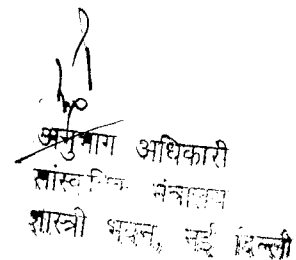 अनुभाग अधिकारी
मंत्रालय
शास्त्री भवन, नई दिल्ली